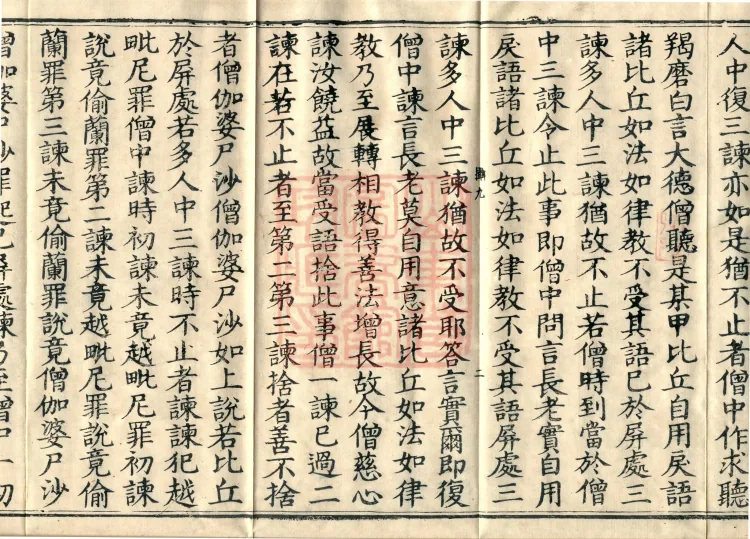 人中復三諫亦如是猶不止者僧中作求聽
羯磨白言大德僧聽是某甲比丘自用戾語
諸比丘如法如律教不受其語已於屏處三
諫多人中三諫猶故不止若僧時到當於僧
中三諫令止此事即僧中問言長老實自用
戾語諸比丘如法如律教不受其語屏處三
諫多人中三諫猶故不受耶答言實爾即復
僧中諫言長老莫自用意諸比丘如法如律
教乃至展轉相教得善法增長故今僧慈心
諫汝饒益故當受語捨此事僧一諫已過二
諫在若不止者至第二第三諫捨者善不捨
者僧伽婆尸沙僧伽婆尸沙如上說若比丘
於屏處若多人中三諫時不止者諫諫犯越
毗尼罪僧中諫時初諫未竟越毗尼罪初諫
說竟偷蘭罪第二諫未竟越毗尼罪說竟偷
蘭罪第三諫未竟偷蘭罪說竟僧伽婆尸沙
僧伽婆尸沙罪起已屏處諫乃至僧中一切